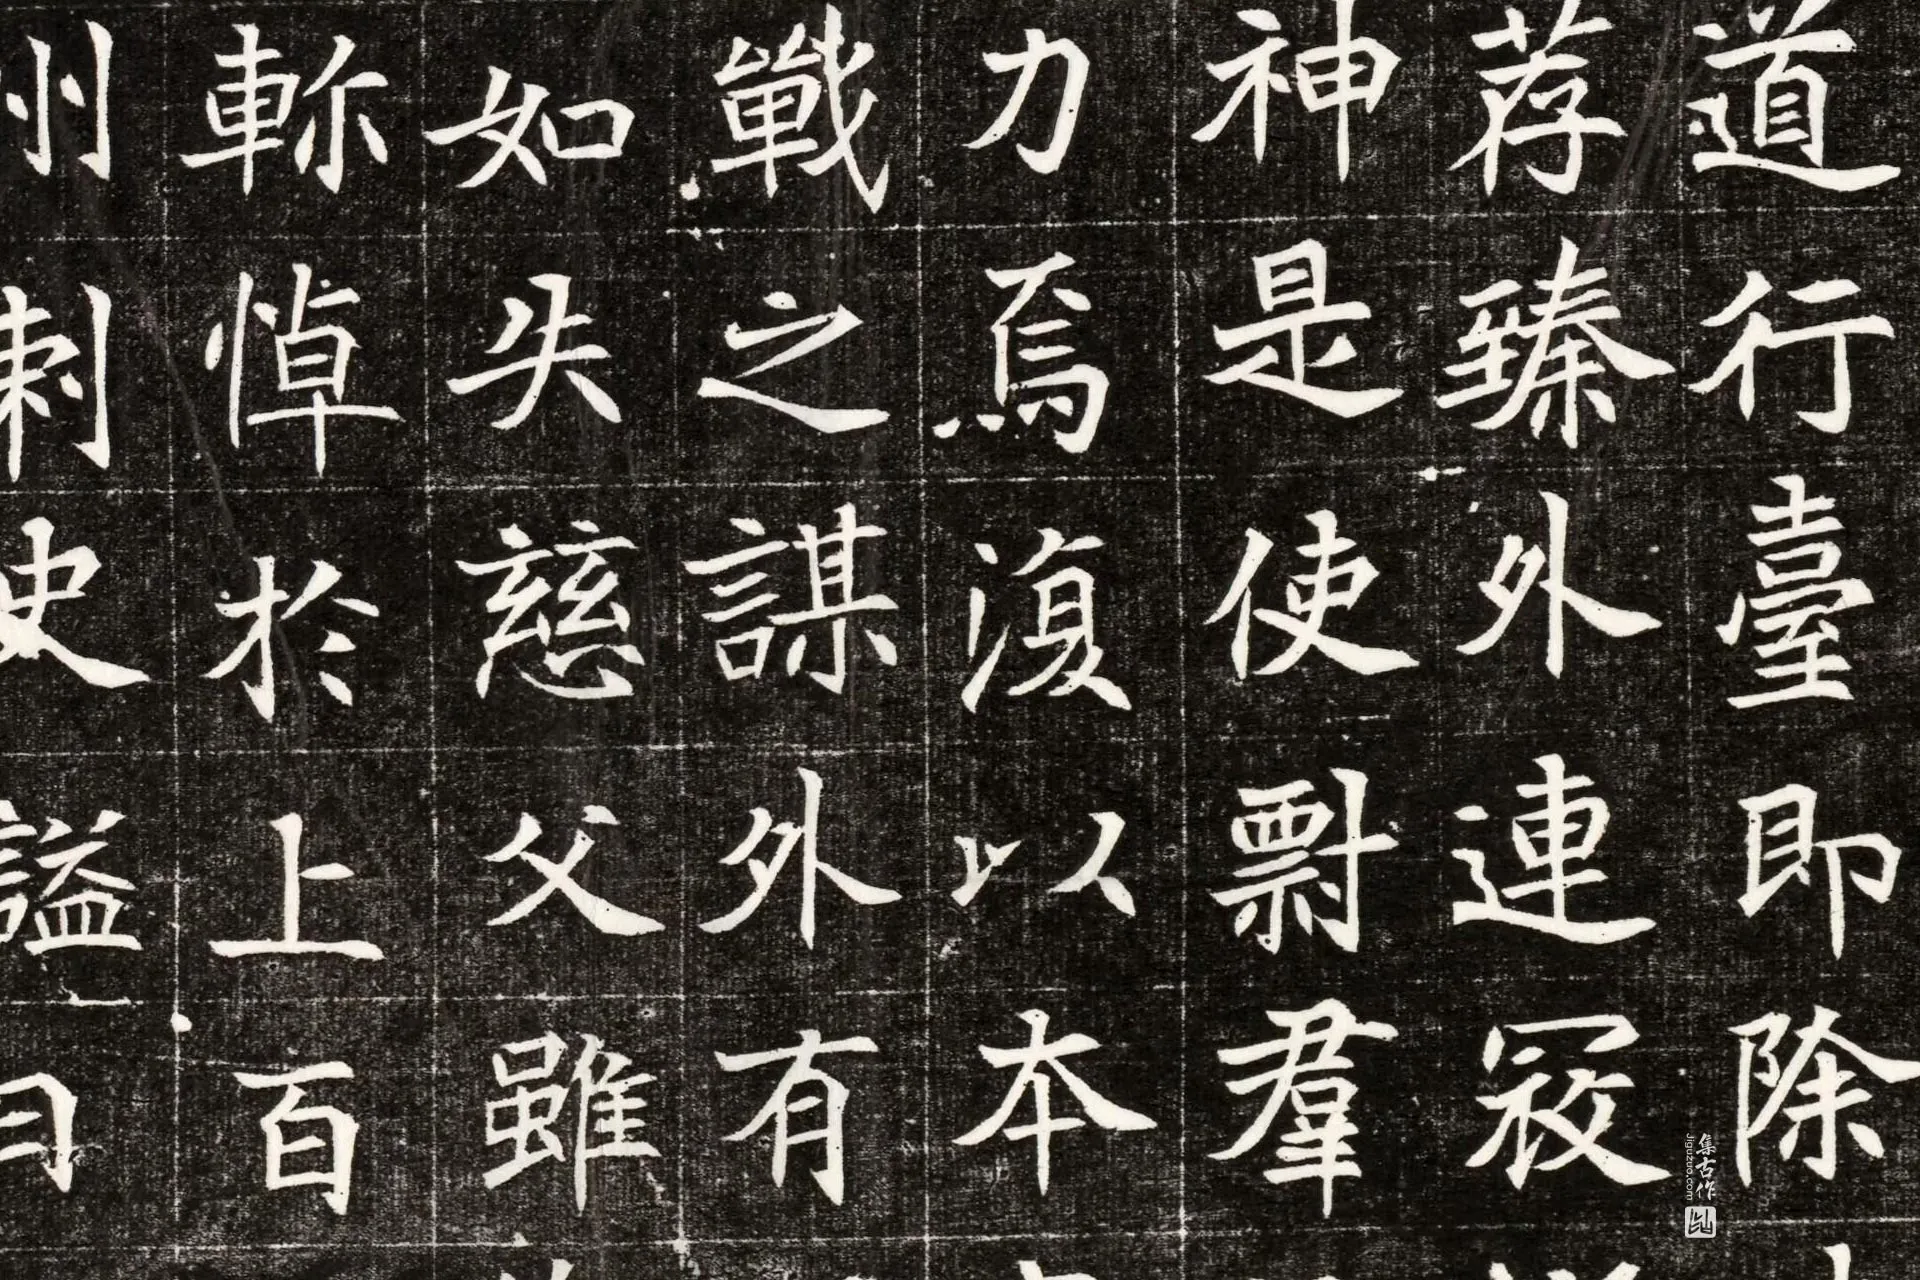 道行臺即除
荐臻外連寇
神是使羣
力焉復以本
戰之謀外有
如失慈父雖
軫悼於上百
州刺史謚曰
集古作
Jiguzuo.com